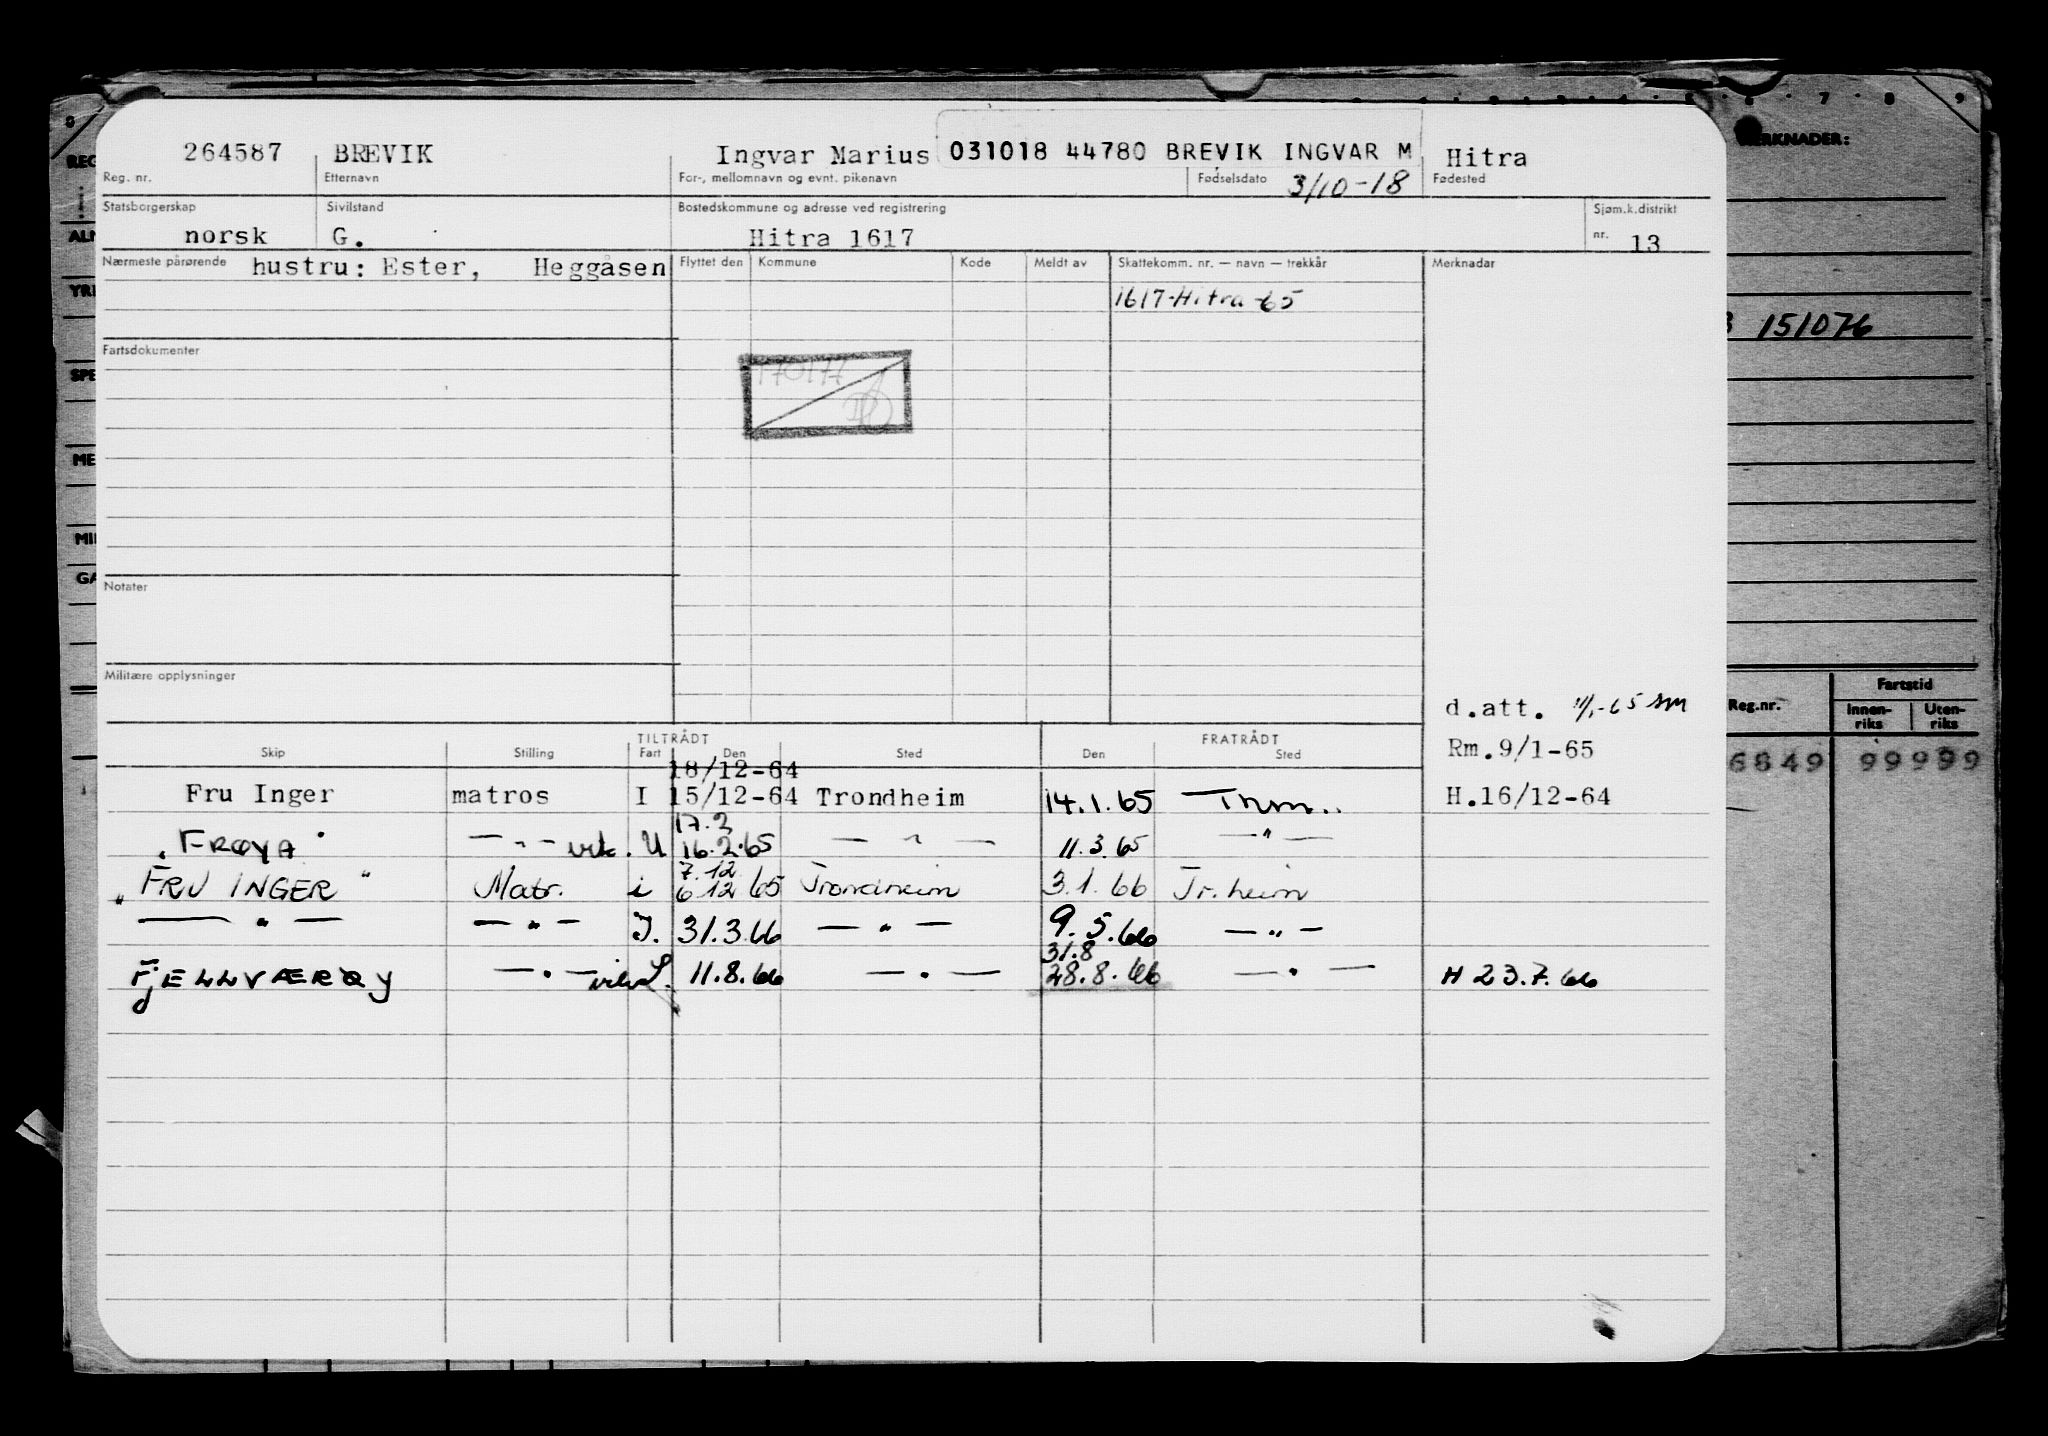 264587 BREVIK Ingvar Marius 031018 44780 BREVIK INGVAR M Hitra
Reg. nr. Etternavn For-, mellomnavn og evnt. pikenavn Fødselsdato 3/10-18 Fødested
Statsborgerskap Sivilstand Bostedskommune og adresse ved registrering Sjøm.k.distrikt
norsk G. Hitra 1617 nr. 13
Nærmeste pårørende hustru: Ester, Heggåsen Flyttet den Kommune Kode Meldt av Skattekomm. nr. — navn — trekkår Merknadar
1617-Hitra-65
Fartsdokumenter
Notater
Militære opplysninger
d.att. -65
TILTRÅDT FRATRÅDT
Skip Stilling Fart Den Sted Den Sted Rm.9/1-65
18/12-64
Fru Inger matros I 15/12-64 Trondheim 14.1.65 H.16/12-64
17.2
"FRØYA" — " — U 16.2.65 — " — 11.3.65 — " —
7.12
"FRU INGER" Matr. i 6.12 65 Trondheim 3.1.66 Tr.heim
— " — — " — I. 31.3.66 — " — 9.5.66 — " —
31.8
FJELLVÆRØY — " — 11.8.66 — " — 28.8.66 — " — H 23.7.66
6 7 8 9
MERKNADER:
151076
Reg.nr. Fartstid
Innen-riks Uten-riks
6849 99999